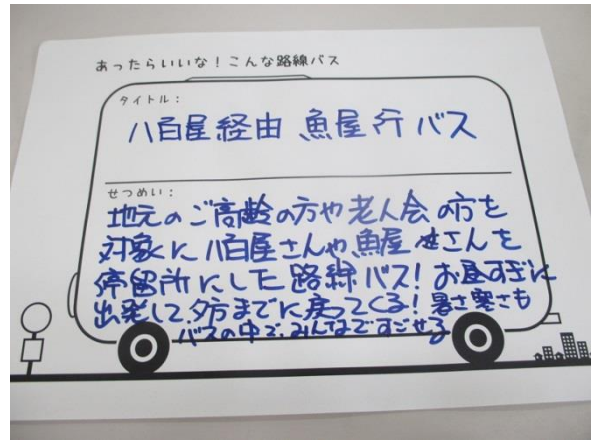 あったらいいな！こんな路線バス
タイトル：
八百屋経由 魚屋行バス
せつめい：
地元のご高齢の方や老人会の方を
対象に八百屋さんや魚屋さんを
停留所にした路線バス！お昼すぎに
出発して夕方までに戻ってくる！暑さ寒さも
バスの中で、みんなですごせる